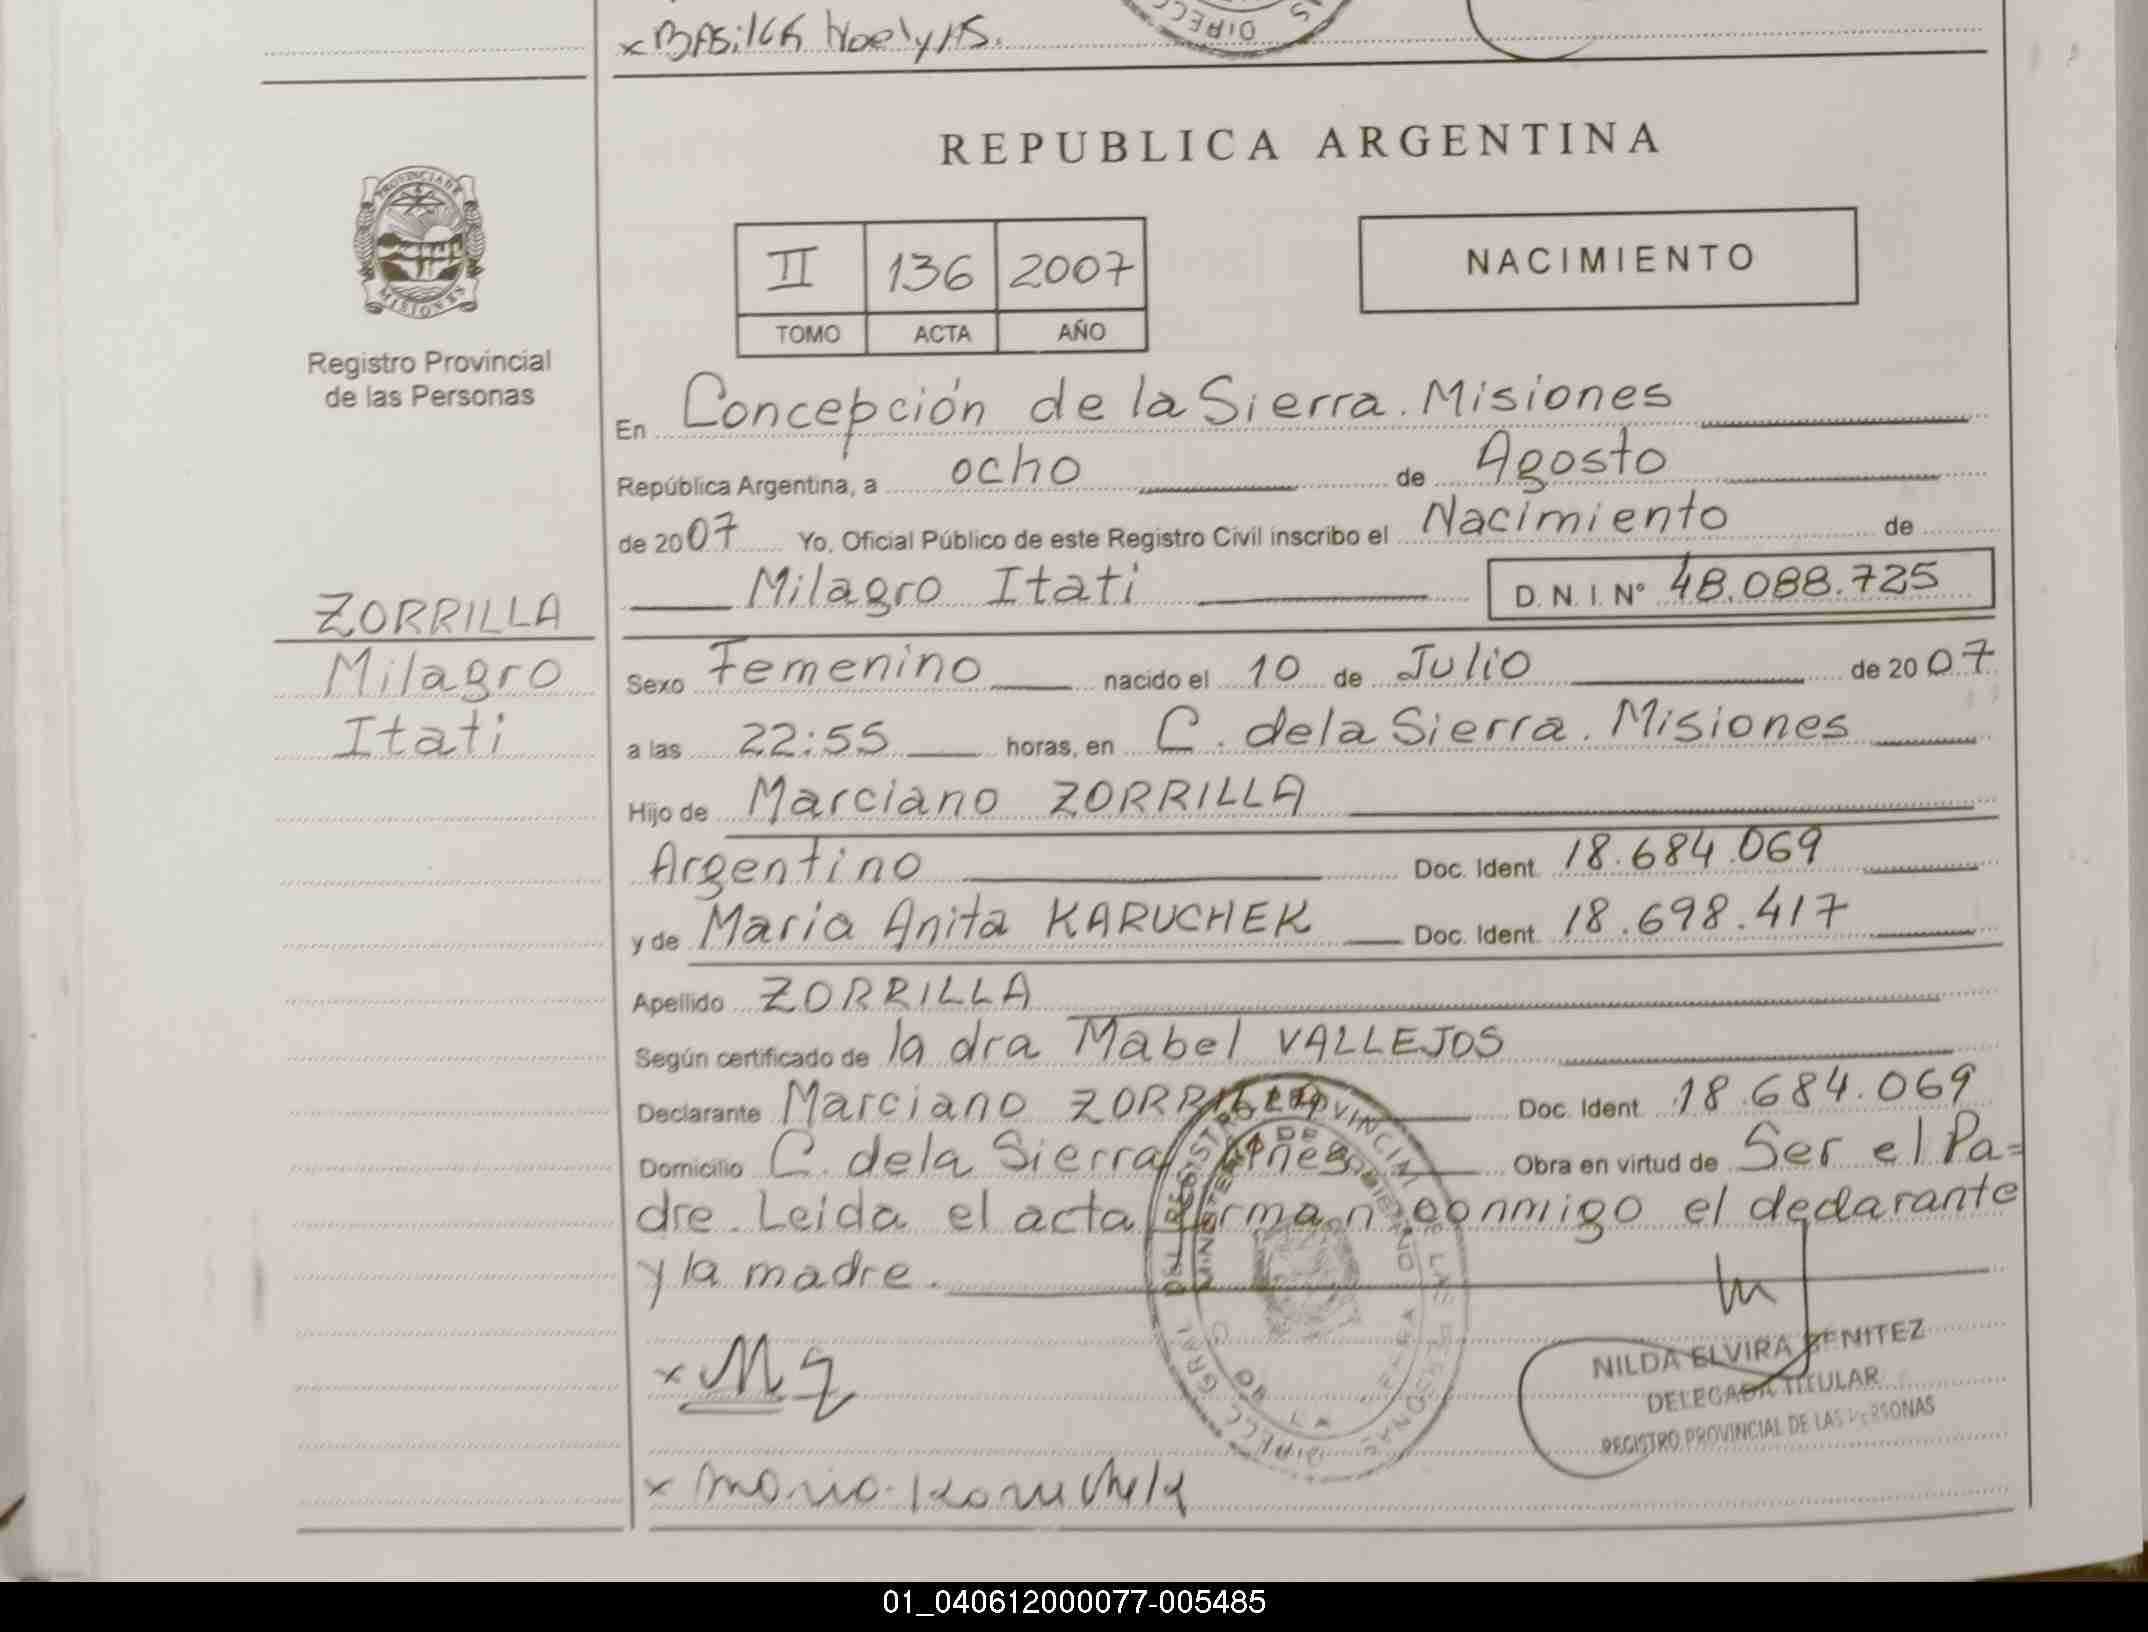 x BASilck Noelyas.
DIRECC
REPUBLICA ARGENTINA
PROVINCIA DE
MISIONES
Registro Provincial
de las Personas
II 136 2007
TOMO ACTA AÑO
NACIMIENTO
En Concepción de la Sierra. Misiones
República Argentina, a ocho de Agosto
de 2007 Yo, Oficial Público de este Registro Civil inscribo el Nacimiento de
Milagro Itati D.N.I. Nº 48.088.725
ZORRILLA
Milagro
Itati
Sexo Femenino nacido el 10 de Julio de 2007
a las 22:55 horas, en C. de la Sierra. Misiones
Hijo de Marciano ZORRILLA
Argentino Doc. Ident. 18.684.069
y de Maria Anita KARUCHEK Doc. Ident. 18.698.417
Apellido ZORRILLA
Según certificado de la dra Mabel VALLEJOS
Declarante Marciano ZORRILLA Doc. Ident. 18.684.069
Domicilio C. de la Sierra Mnes Obra en virtud de Ser el Pa=
dre. Leida el acta firman conmigo el declarante
y la madre.
x MZ
NILDA ELVIRA BENITEZ
DELEGADA TITULAR
REGISTRO PROVINCIAL DE LAS PERSONAS
x Maria Karuchek
DIRECC. GRAL. DEL REGISTRO PROVINCIAL DE LAS PERSONAS
MINISTERIO DE GOBIERNO
01_040612000077-005485